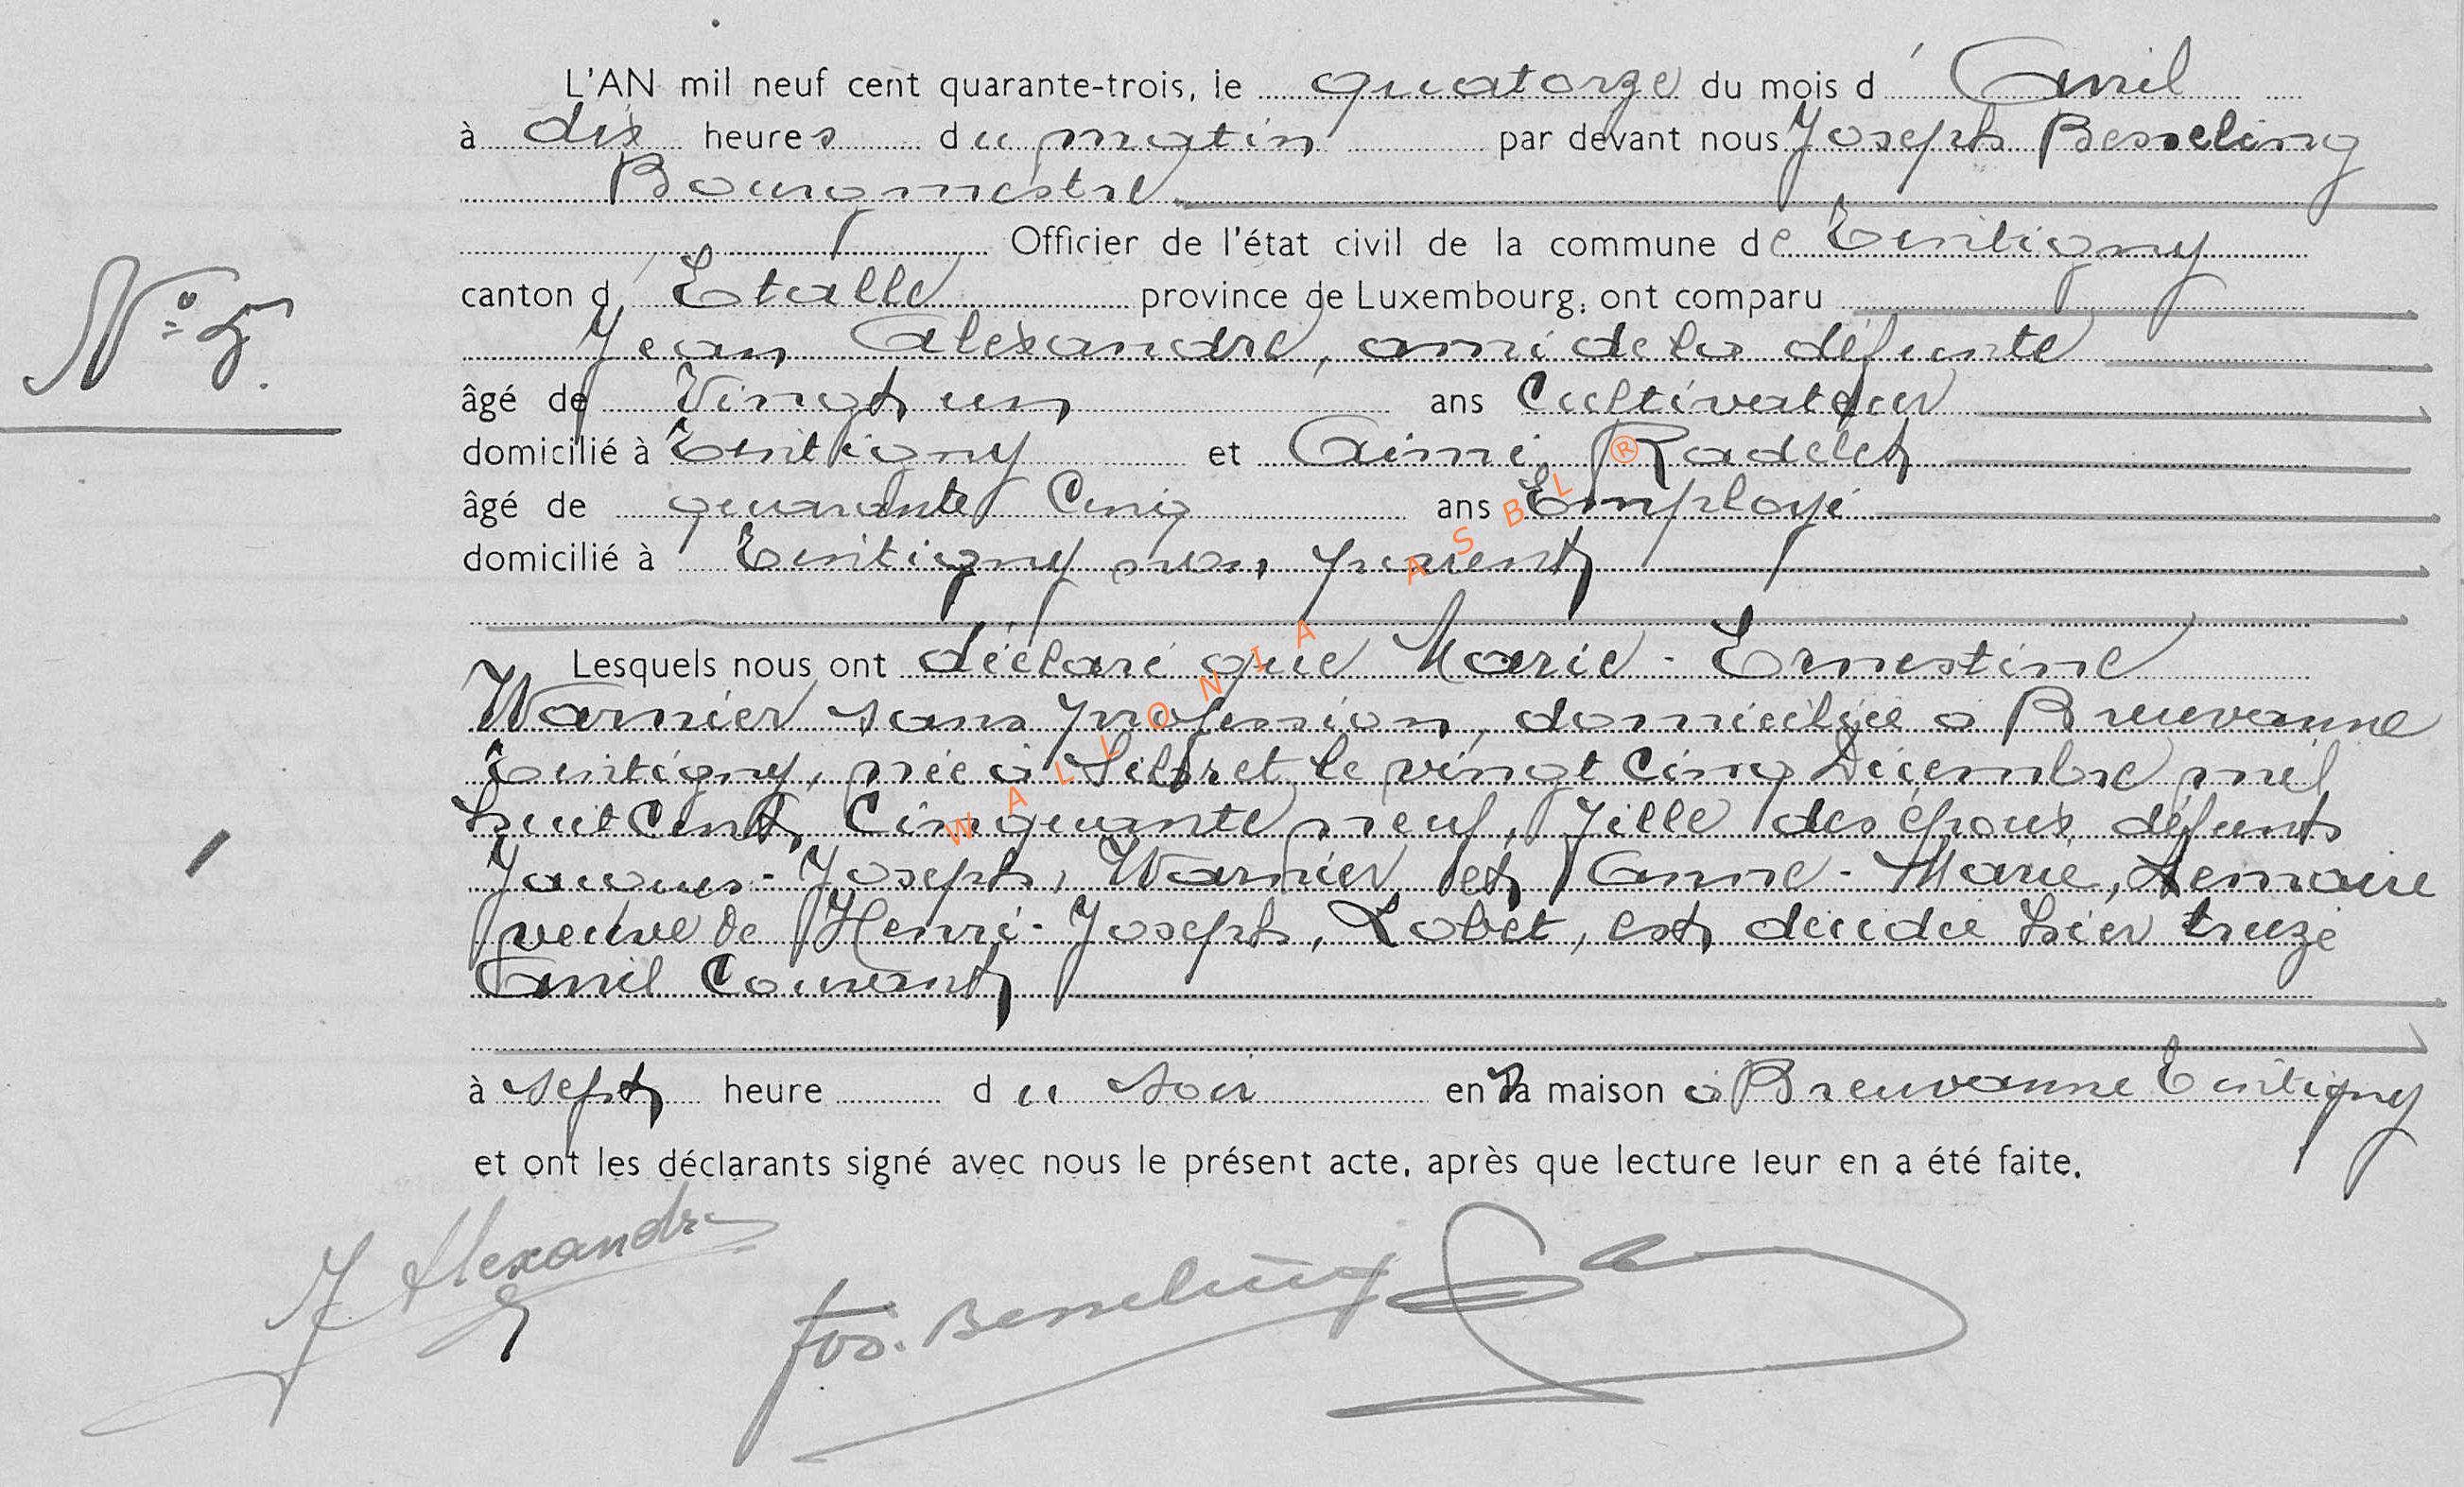 L'AN mil neuf cent quarante-trois, le quatorze du mois d' Avril
à dix heures du matin par devant nous Joseph Besseling
Bourgmestre
Officier de l'état civil de la commune de Tintigny
canton d' Etalle province de Luxembourg, ont comparu
N° 5.
Jean Alexandre, ami de la défunte
âgé de Vingt un ans Cultivateur
domicilié à Tintigny et Aimé Radelet
âgé de quarante Cinq ans Employé
domicilié à Tintigny non parent
Lesquels nous ont déclaré que Marie-Ernestine
Warnier sans profession, domiciliée à Breuvanne
Tintigny, née à Sibret le vingt Cinq Décembre mil
huit Cent Cinquante neuf, fille des époux défunts
Jacques-Joseph, Warnier et Anne-Marie, Lemaire
veuve de Henri-Joseph, Lobet, est décédée hier treize
Avril Courant
à sept heure du soir en sa maison à Breuvanne Tintigny
et ont les déclarants signé avec nous le présent acte, après que lecture leur en a été faite.
J Alexandre
Jos. Besseling
WALLONIA ASBL ®